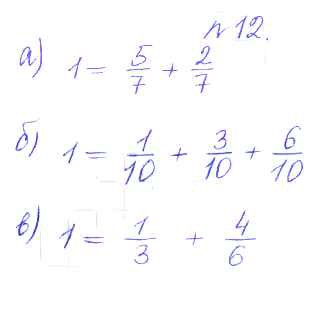 №12.
а) 1 = 5/7 + 2/7
б) 1 = 1/10 + 3/10 + 6/10
в) 1 = 1/3 + 4/6